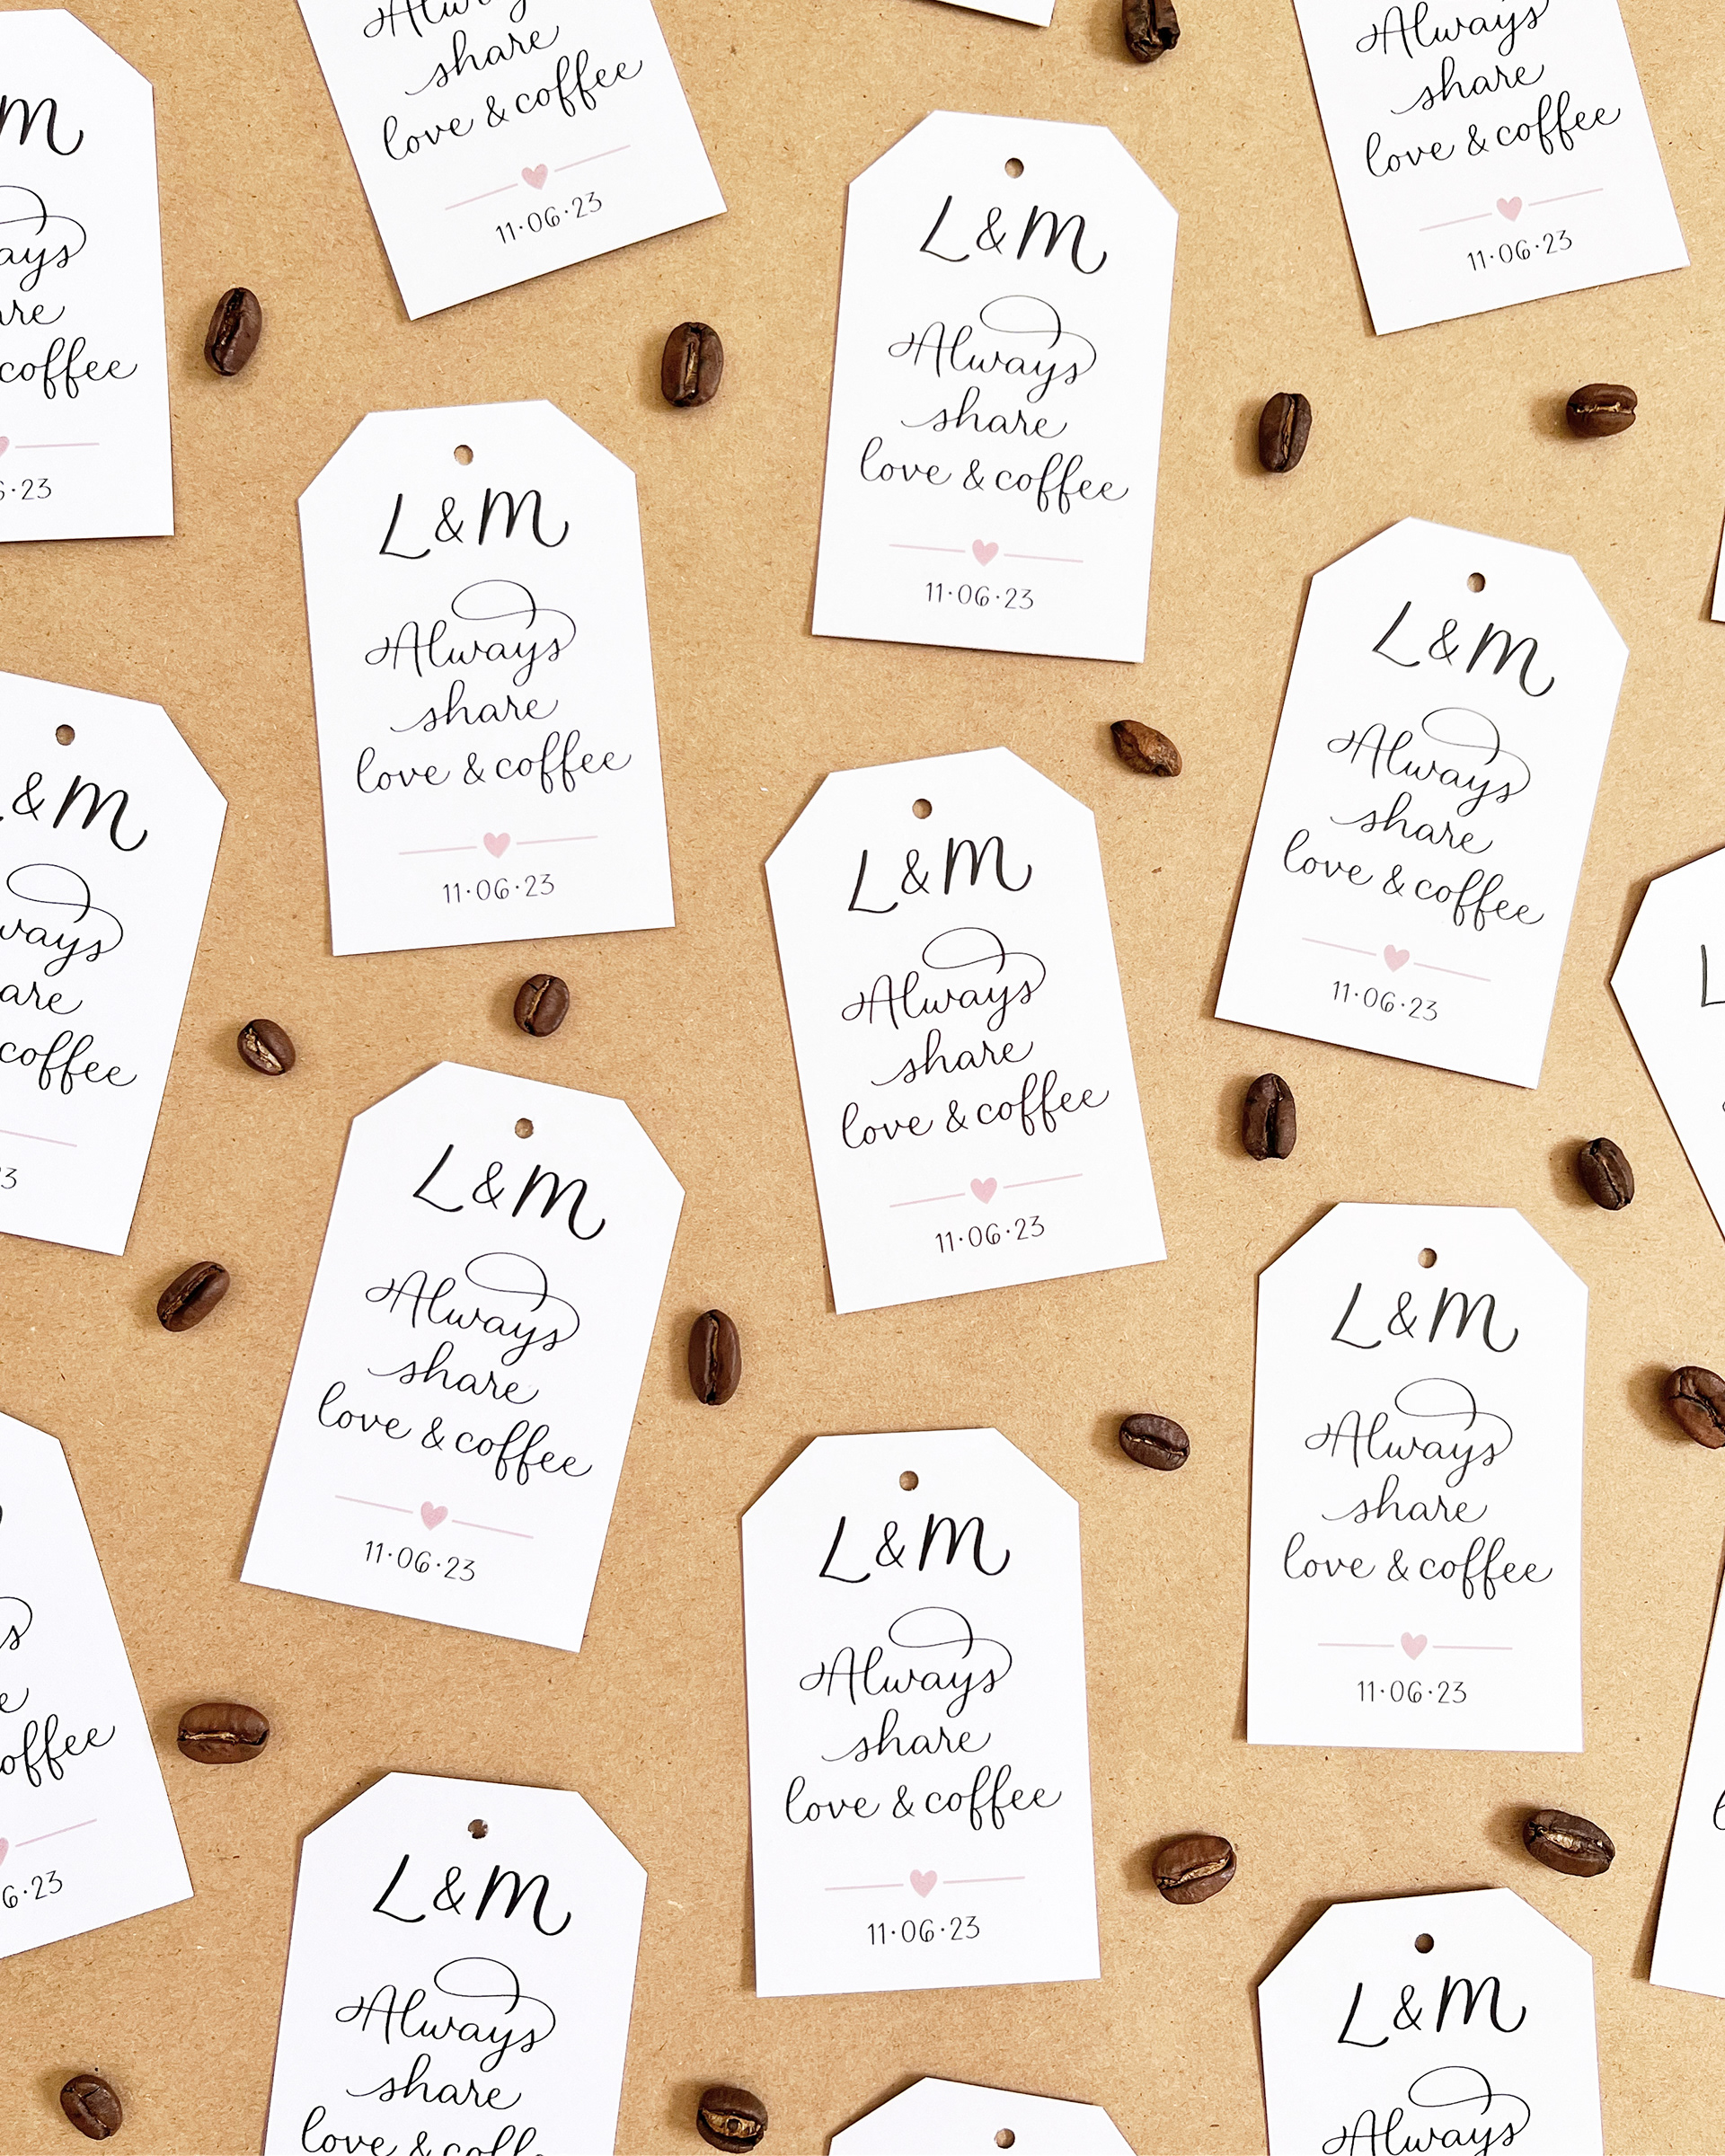 Always
share
love & coffee
11·06·23
Always
share
love & coffee
11·06·23
M
coffee
L & M
Always
share
love & coffee
11·06·23
L & M
Always
share
love & coffee
11·06·23
L & M
Always
share
love & coffee
11·06·23
& M
coffee
L & M
Always
share
love & coffee
11·06·23
L
L & M
Always
share
love & coffee
11·06·23
L & M
Always
share
love & coffee
11·06·23
L & M
Always
share
love & coffee
11·06·23
L & M
Always
share
love &
L & M
Always